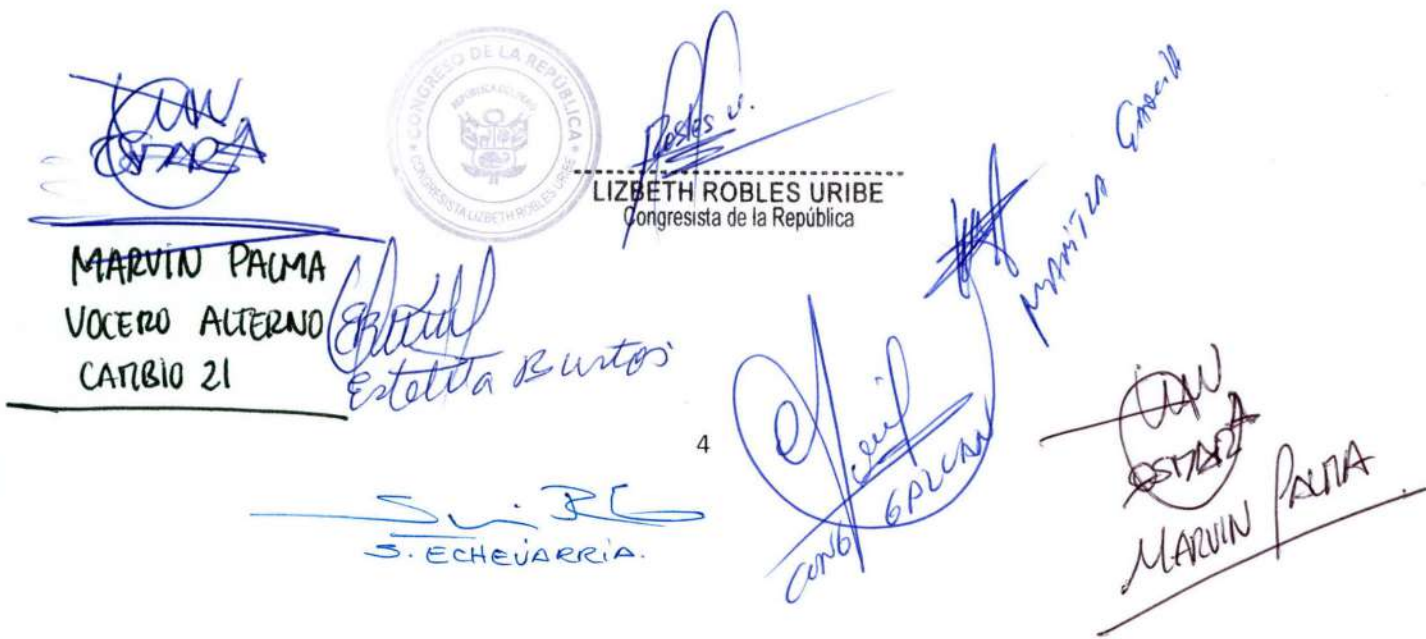 CONGRESO DE LA REPÚBLICA
REPÚBLICA DEL PERÚ
CONGRESISTA LIZBETH ROBLES URIBE
Robles U.
LIZBETH ROBLES URIBE
Congresista de la República
MARVIN PALMA
VOCERO ALTERNO
CAMBIO 21
Estelita Bustos
4
S. ECHEVARRIA.
CONG GALVAN
MARVIN PALMA